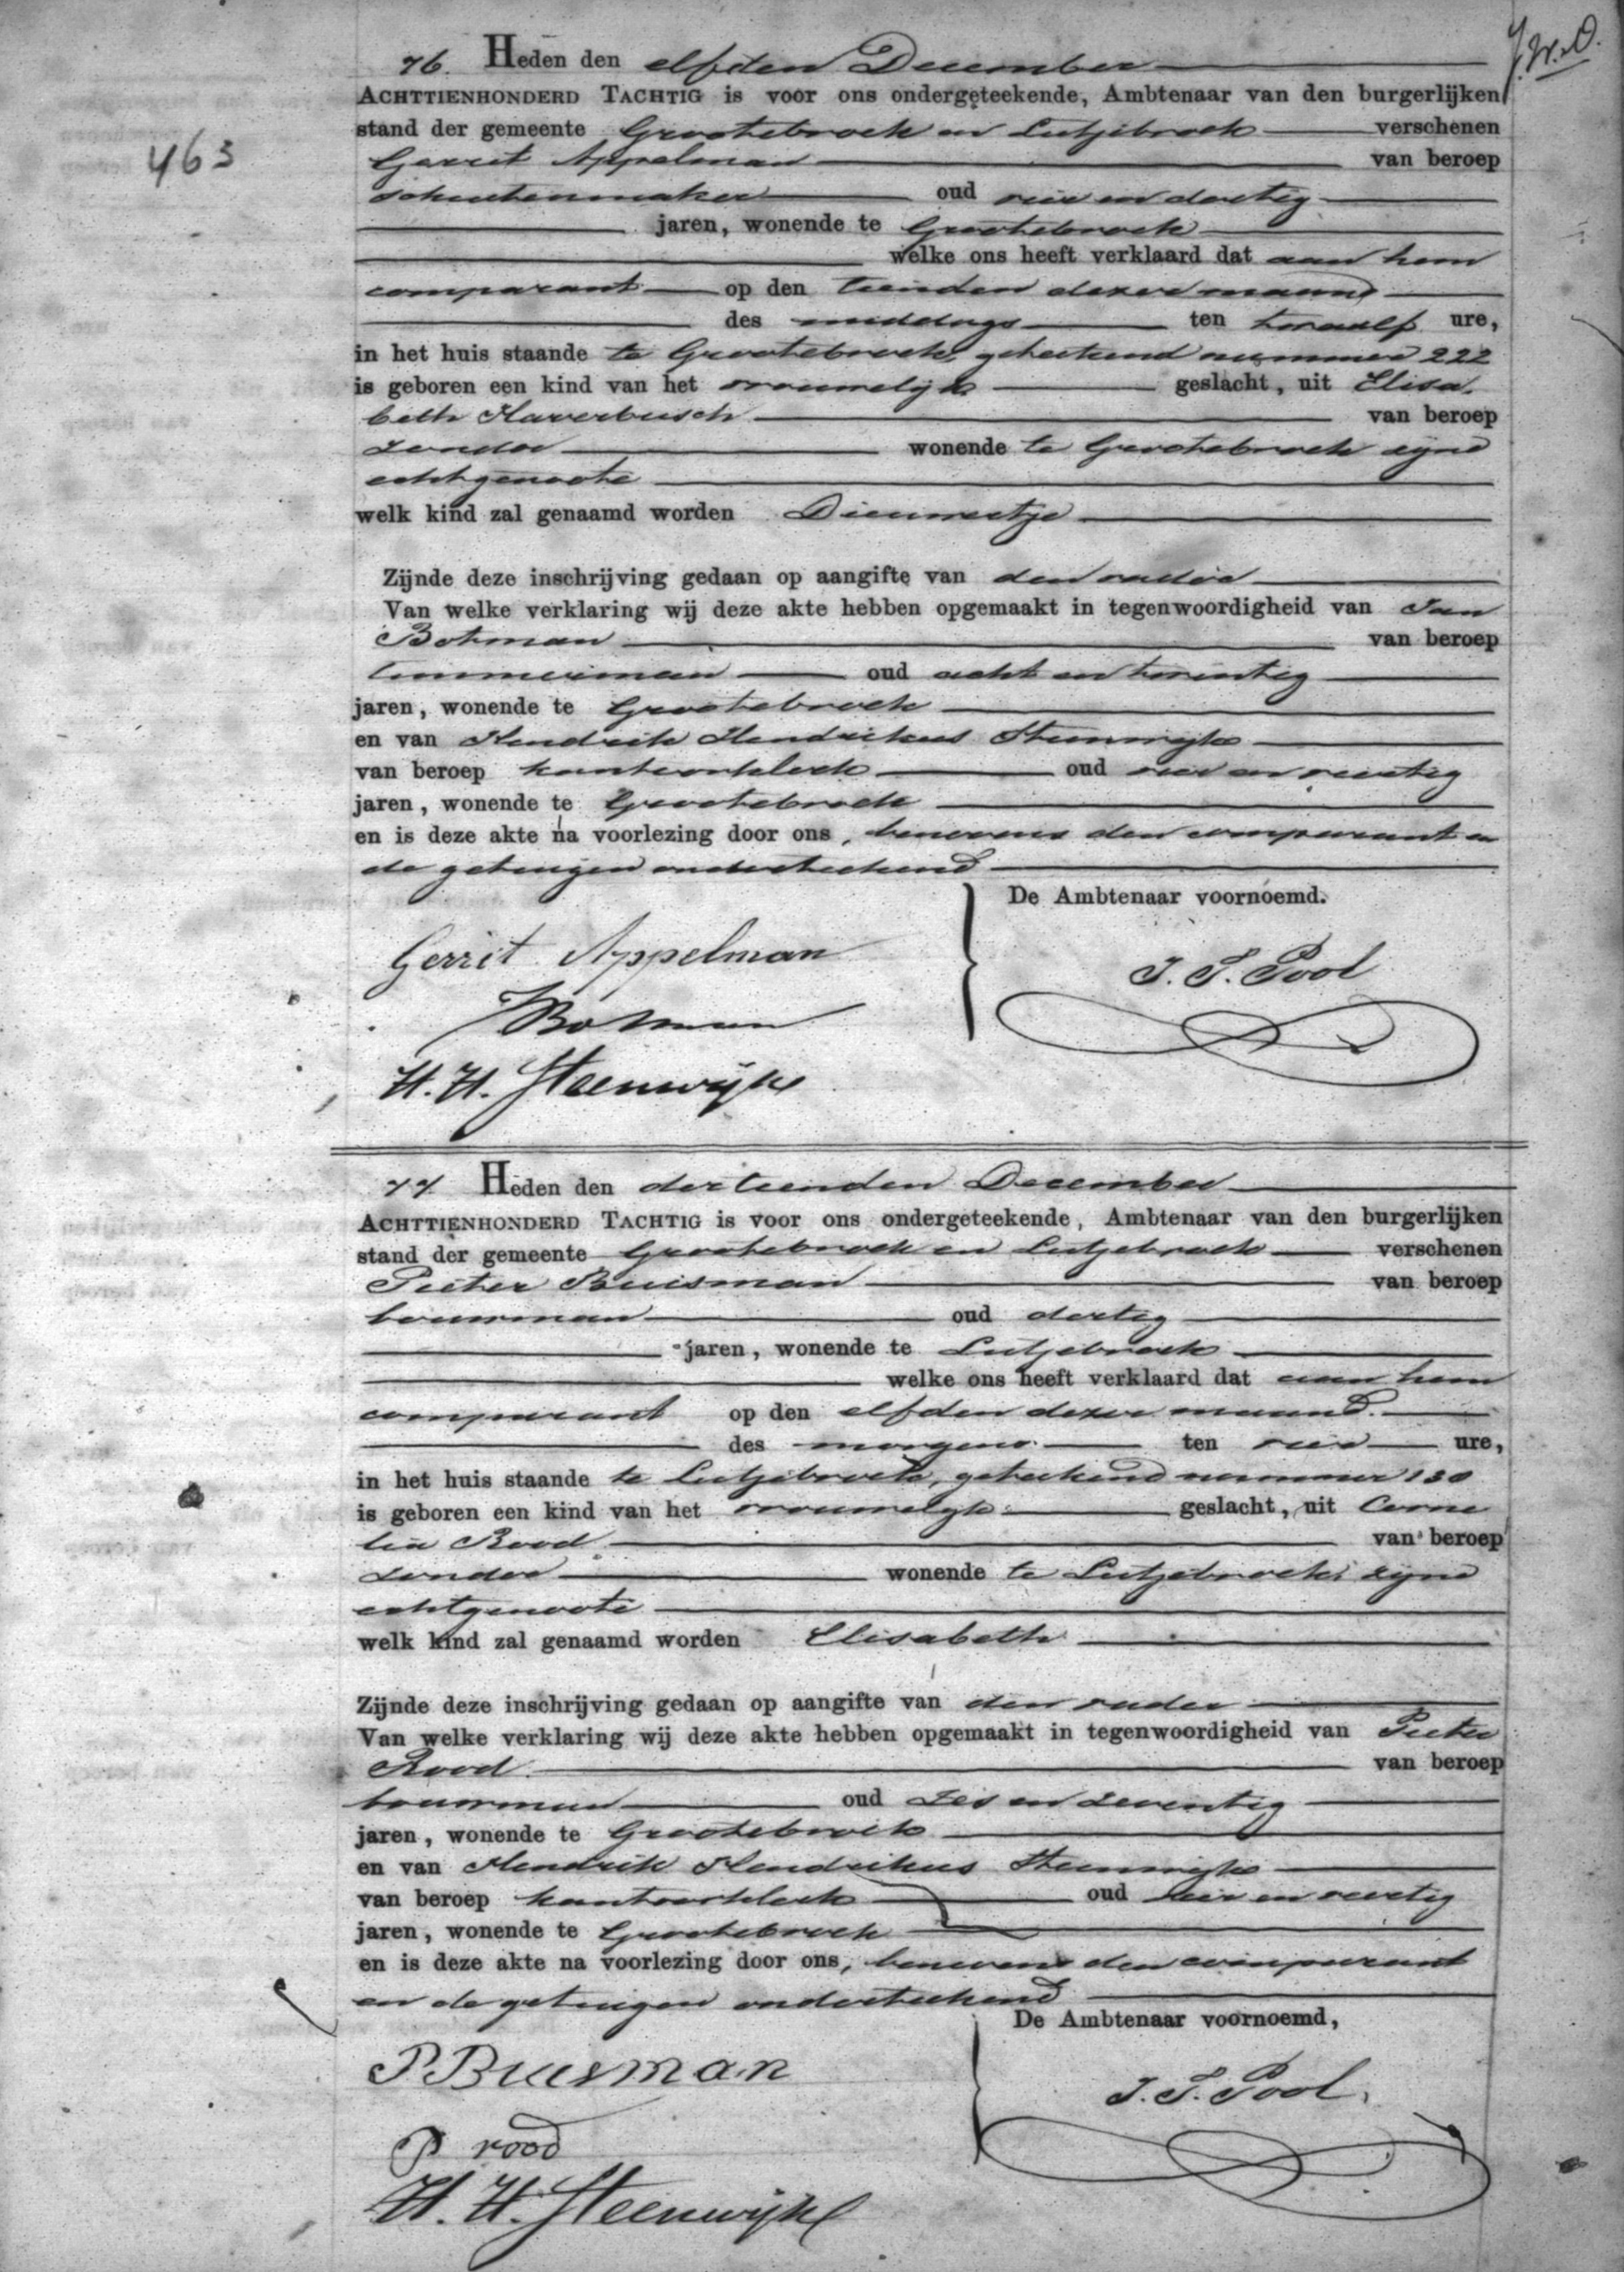 J.W.O.
76. Heden den elfden December
ACHTTIENHONDERD TACHTIG is voor ons ondergeteekende, Ambtenaar van den burgerlijken
stand der gemeente Grootebroek en Lutjebroek verschenen
463
Gerrit Appelman van beroep
schuitenmaker oud vier en dertig
jaren, wonende te Grootebroek
welke ons heeft verklaard dat aan hem
comparant op den tienden dezer maand
des middags ten twaalf ure,
in het huis staande te Grootebroek, geteekend nummer 222
is geboren een kind van het vrouwelijk geslacht, uit Elisa
beth Haverbusch van beroep
zonder wonende te Grootebroek zijne
echtgenoote
welk kind zal genaamd worden Dieuwertje
Zijnde deze inschrijving gedaan op aangifte van den vader
Van welke verklaring wij deze akte hebben opgemaakt in tegenwoordigheid van Jan
Botman van beroep
timmerman oud acht en twintig
jaren, wonende te Grootebroek
en van Hendrik Hendrikus Steenwijk
van beroep kantoorklerk oud vier en veertig
jaren, wonende te Grootebroek
en is deze akte na voorlezing door ons, benevens den comparant en
de getuigen onderteekend
De Ambtenaar voornoemd.
Gerrit Appelman
J. S. Pool
J Botman
H. H. Steenwijk
77 Heden den dertienden December
ACHTTIENHONDERD TACHTIG is voor ons ondergeteekende, Ambtenaar van den burgerlijken
stand der gemeente Grootebroek en Lutjebroek verschenen
Pieter Buisman van beroep
bouwman oud dertig
jaren, wonende te Lutjebroek
welke ons heeft verklaard dat aan hem
comparant op den elfden dezer maand
des morgens ten vier ure,
in het huis staande te Lutjebroek, geteekend nummer 130
is geboren een kind van het vrouwelijk geslacht, uit Corne
lia Rood van beroep
zonder wonende te Lutjebroek zijne
echtgenoote
welk kind zal genaamd worden Elisabeth
Zijnde deze inschrijving gedaan op aangifte van den vader
Van welke verklaring wij deze akte hebben opgemaakt in tegenwoordigheid van Pieter
Rood van beroep
bouwman oud zes en zeventig
jaren, wonende te Grootebroek
en van Hendrik Hendrikus Steenwijk
van beroep kantoorklerk oud vier en veertig
jaren, wonende te Grootebroek
en is deze akte na voorlezing door ons, benevens den comparant
en de getuigen onderteekend
De Ambtenaar voornoemd,
P Buisman
J. S. Pool
P rood
H. H. Steenwijk